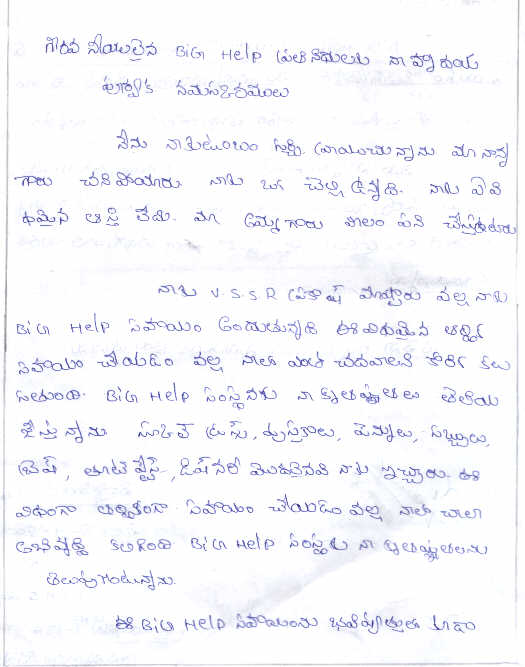 గౌరవ నీయులైన BiG Help ప్రతినిధులకు నా హృదయ
పూర్వక నమస్కారములు
నేను నా కుటుంబం గుర్చి వ్రాయుచున్నాను మా నాన్న
గారు చనిపోయారు. నాకు ఒక చెల్లి ఉన్నది. నాకు ఏ వి
ధమైన ఆస్తి లేదు. మా అమ్మ గారు పొలం పని చేస్తుంటారు
నాకు V.S.S.R ప్రకాష్ మాస్టారు వల్ల నాకు
BiG Help సహాయం అందుతున్నది ఈ విధమైన ఆర్థిక
సహాయం చేయడం వల్ల నాలో ఇంకా చదవాలనే కోరిక కలు
గుతుంది. BiG Help సంస్థకు నా కృతజ్ఞతలు తెలియ
జేస్తున్నాను స్కూల్ డ్రస్, పుస్తకాలు, పెన్నులు, సబ్బులు,
బ్రెష్, టూత్ పేస్ట్, డిషనరీ మొదలైనవి నాకు ఇచ్చారు. ఈ
విధంగా ఆర్థికంగా సహాయం చేయడం వల్ల నాలో చాలా
అభివృద్ధి కలిగింది BiG Help సంస్థకు నా కృతజ్ఞతలను
తెలుపుగుంటున్నాను.
ఈ BiG Help సహాయంను భవిష్యత్తులో కూడా